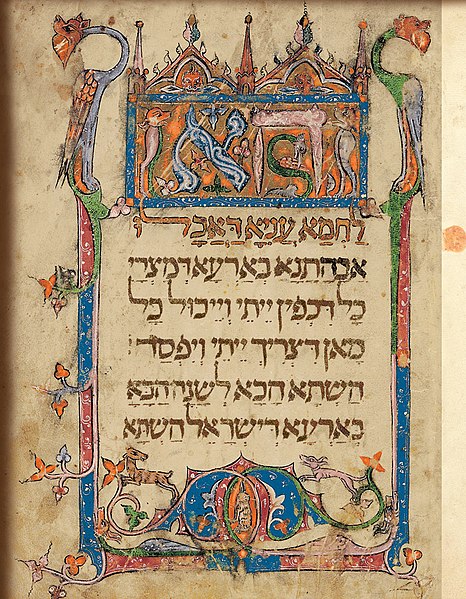 הא
לחמא עניא דאכלו
אבהתנא בארעא דמצרי
כל דכפין ייתי וייכול כל
מאן דצריך ייתי ויפסח:
השתא הכא לשנה הבא
בארעא דישראל השתא